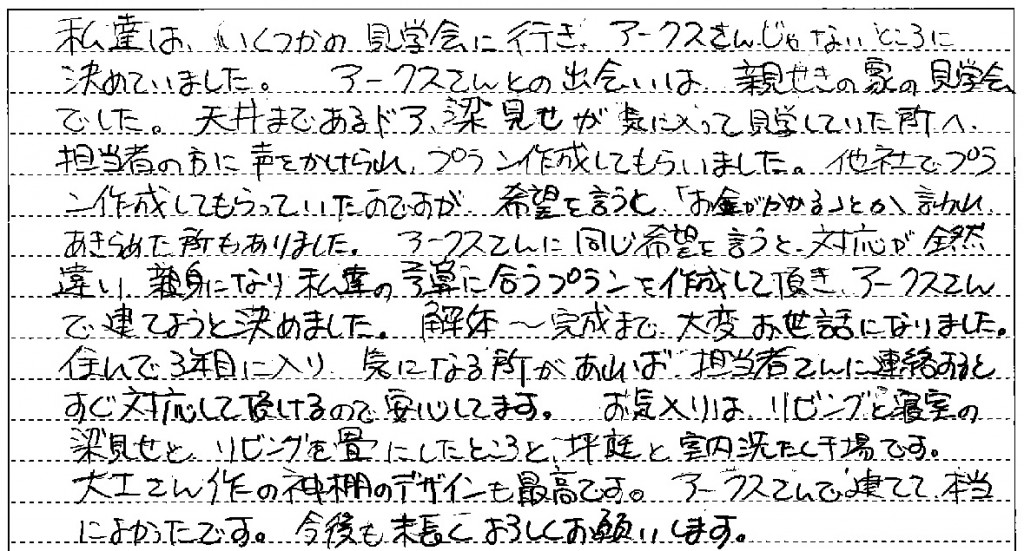 私達は、いくつかの見学会に行き、アークスさんじゃないところに
決めていました。 アークスさんとの出会いは、親せきの家の見学会
でした。天井まであるドア、梁見せが気に入って見学していた所へ、
担当者の方に声をかけられ、プラン作成してもらいました。他社でプラ
ン作成してもらっていたのですが、希望を言うと、「お金がかかる」とか言われ、
あきらめた所もありました。 アークスさんに同じ希望を言うと、対応が全然
違い、親身になり私達の予算に合うプランを作成して頂き、アークスさん
で建てようと決めました。 解体～完成まで、大変お世話になりました。
住んで3年目に入り、気になる所があれば、担当者さんに連絡すると
すぐ対応して頂けるので安心してます。 お気入りは、リビングと寝室の
梁見せと、リビングを畳にしたところと、坪庭と室内洗たく干場です。
大工さん作の神棚のデザインも最高です。 アークスさんで建てて、本当
によかったです。今後も末長くよろしくお願いします。